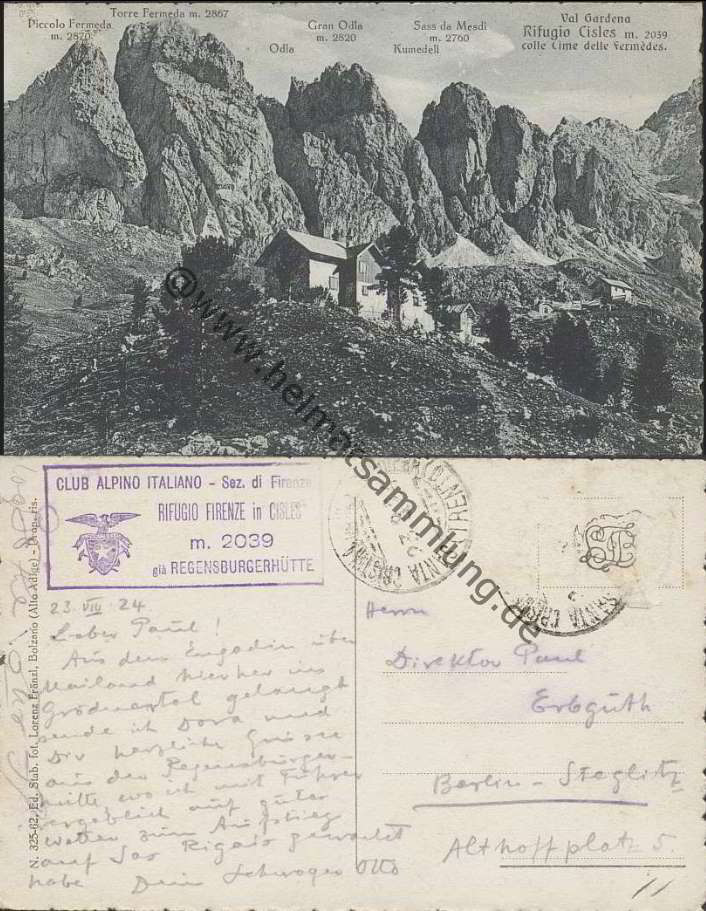 Torre Fermeda m. 2867
Piccolo Fermeda
m. 2870
Odla
Gran Odla
m. 2820
Kumedell
Sass da Mesdi
m. 2760
Val Gardena
Rifugio Cisles m. 2039
colle Cime delle Fermèdes.
@www.heimatsammlung.de
CLUB ALPINO ITALIANO - Sez. di Firenze
RIFUGIO FIRENZE in CISLES
m. 2039
già REGENSBURGERHÜTTE
SANTA CRISTINA
(TRENTO)
SANTA CRISTINA
23. VIII. 24.
Lieber Paul!
Aus dem Engadin über
Mailand hierher ins
Grödnertal gelangt
sende ich Dora und
Dir herzliche Grüsse
aus der Regensburger-
hütte, wo ich mit Führer
vergeblich auf gutes
Wetter zum Aufstieg
auf Sas Rigais gewartet
habe Dein Schwager Otto
Herrn
Direktor Paul
Erbguth
Berlin-Steglitz
Althoffplatz 5.
11
N. 325-62, Ed. Stab. fot. Lorenz Fränzl, Bolzano (Alto Adige) - Propr. ris.